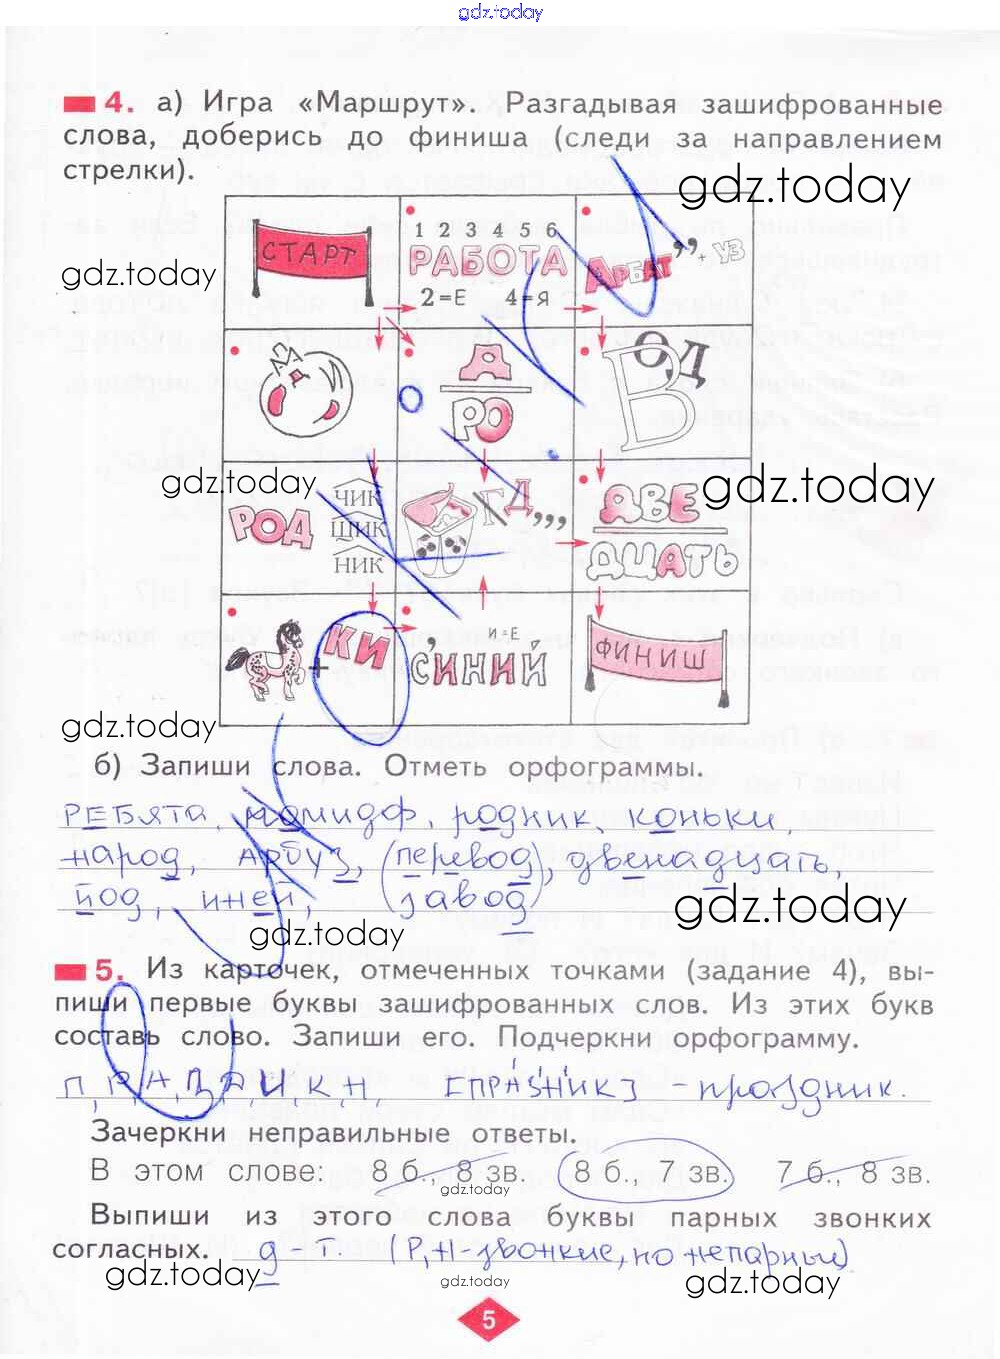 gdz.today
4. а) Игра «Маршрут». Разгадывая зашифрованные
слова, доберись до финиша (следи за направлением
стрелки).
gdz.today
gdz.today
СТАРТ
1 2 3 4 5 6
РАБОТА
2=Е 4=Я
АРБАТ ” + УЗ
Д
РО
В
ОД
gdz.today
gdz.today
РОД
ЧИК
ЩИК
НИК
Г Д ,,,
ДВЕ
ДЦАТЬ
+ КИ
И.=Е
СИНИЙ
ФИНИШ
gdz.today
б) Запиши слова. Отметь орфограммы.
РЕБЯТА, помидор, родник, коньки,
народ, арбуз, (перевод), двенадцать,
йод, иней, (завод)
gdz.today
gdz.today
5. Из карточек, отмеченных точками (задание 4), вы-
пиши первые буквы зашифрованных слов. Из этих букв
составь слово. Запиши его. Подчеркни орфограмму.
П, Р, А, З, Д, И, К, Н, [ПРАЗНИК] - праздник.
Зачеркни неправильные ответы.
В этом слове: 8 б., 8 зв. 8 б. 7 зв. 7 б., 8 зв.
gdz.today
gdz.today
Выпиши из этого слова буквы парных звонких
согласных. д - т. (Р, Н - звонкие, но непарные)
gdz.today
gdz.today
gdz.today
5